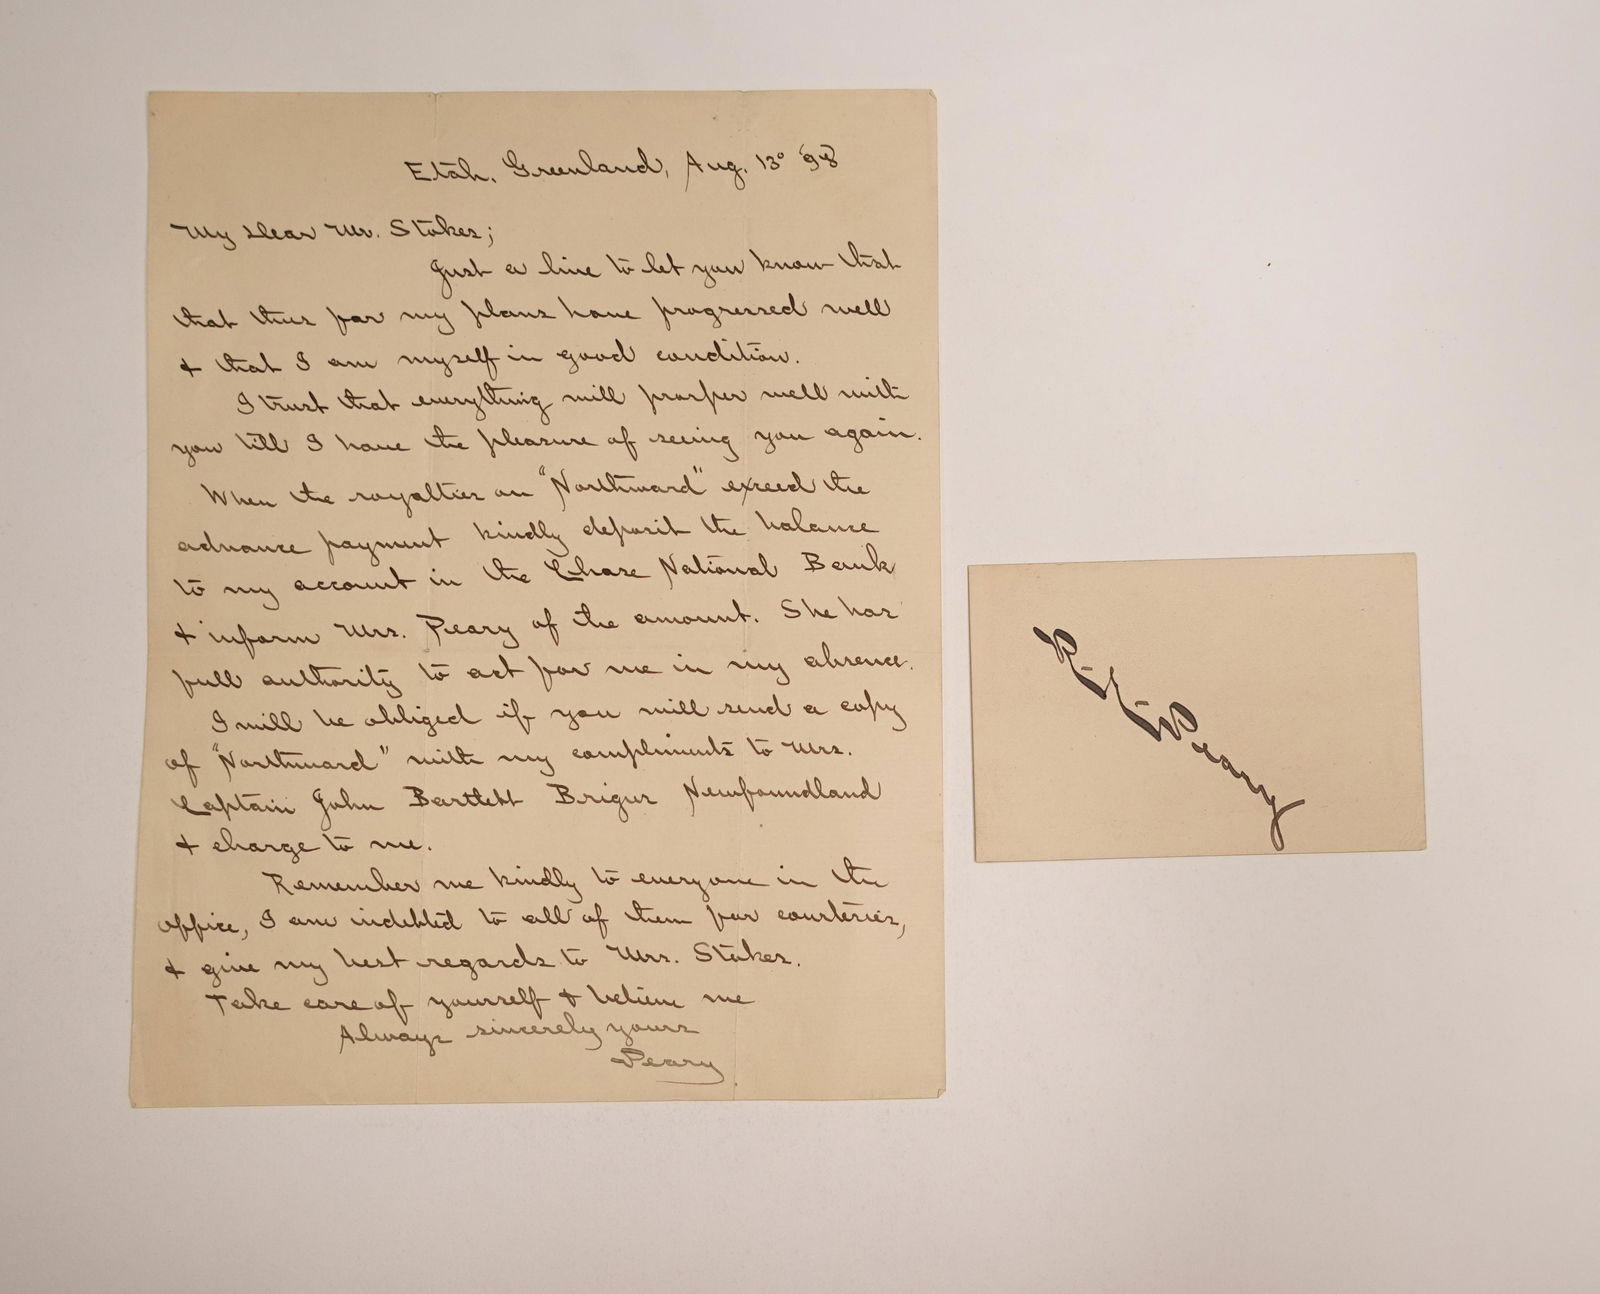 Etah, Greenland, Aug. 13° '98
My Dear Mr. Stokes;
Just a line to let you know that
that thus far my plans have progressed well
& that I am myself in good condition.
I trust that everything will prosper well with
you till I have the pleasure of seeing you again.
When the royalties on "Northward" exceed the
advance payment kindly deposit the balance
to my account in the Chase National Bank
& inform Mrs. Peary of the amount. She has
full authority to act for me in my absence.
I will be obliged if you will send a copy
of "Northward" with my compliments to Mrs.
Captain John Bartlett Brigus Newfoundland
& charge to me.
Remember me kindly to everyone in the
office, I am indebted to all of them for courtesies,
& give my best regards to Mrs. Stokes.
Take care of yourself & believe me
Always sincerely yours
Peary
R. E. Peary